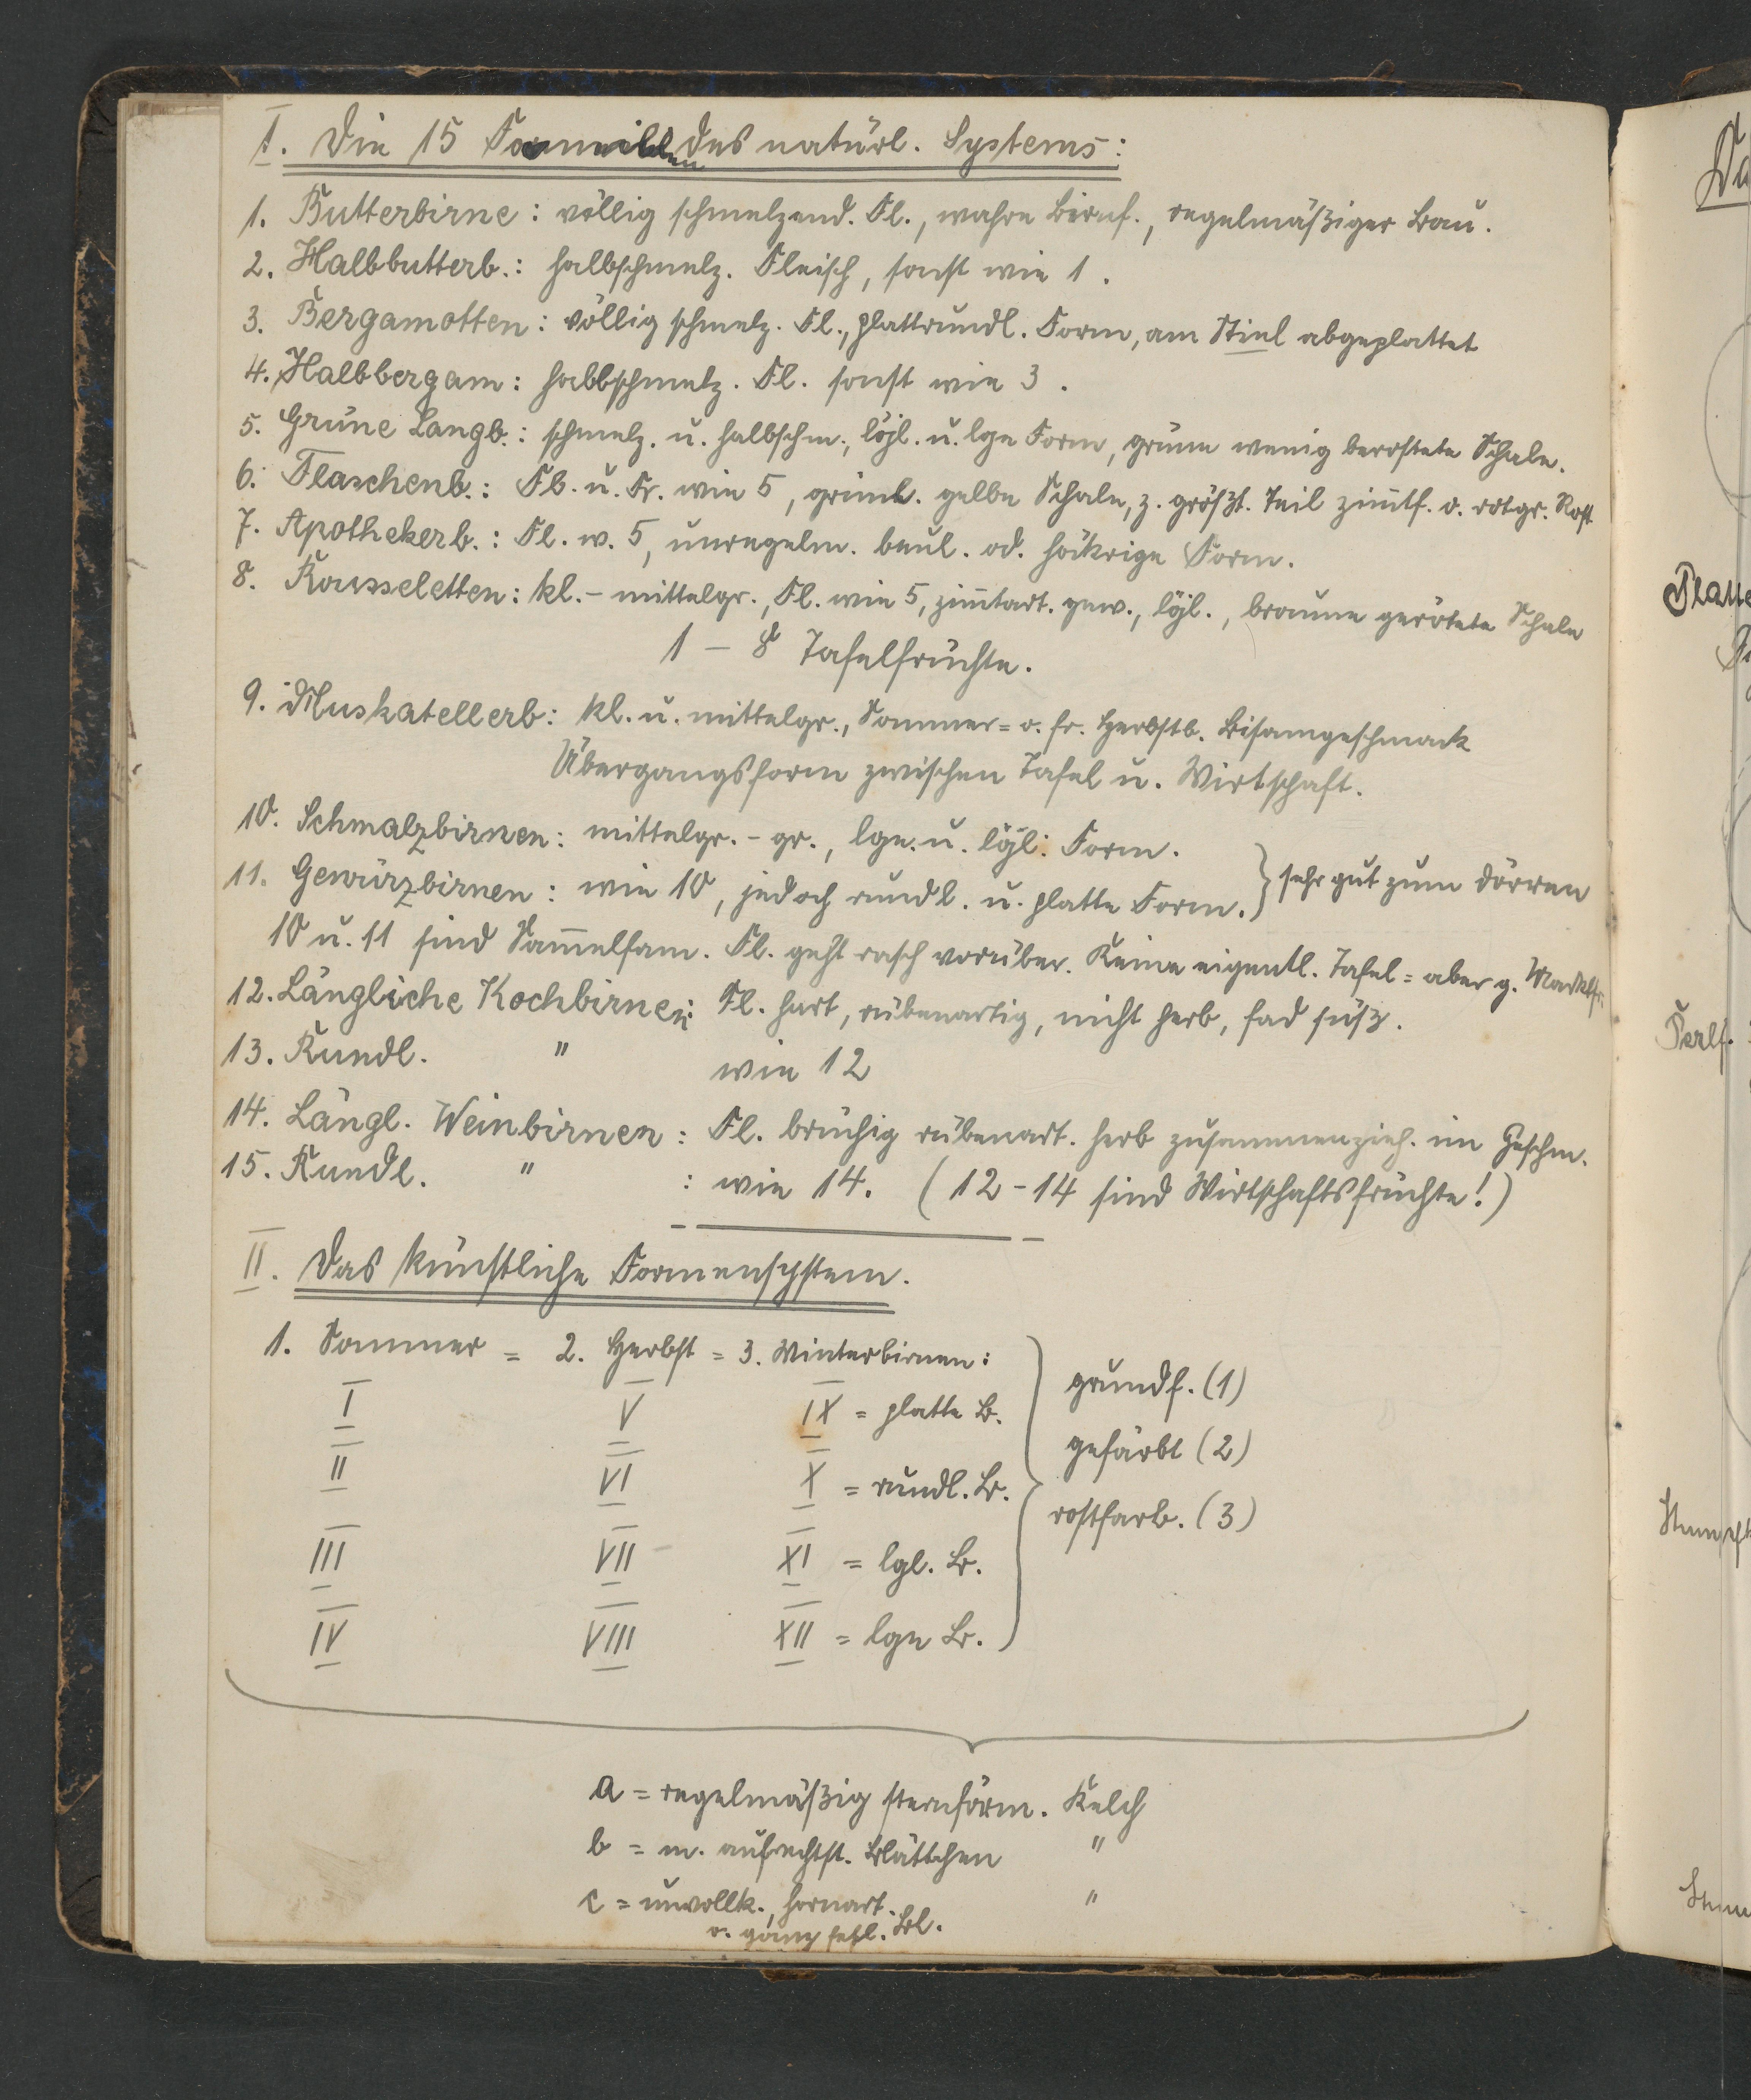 I. Die 15 Formeillen des natürl. Systems:
1. Butterbirne: völlig schmelzend. Fl., wahre Birnf., regelmäßiger Bau.
2. Halbbutterb.: halbschmelz. Fleisch, sonst wie 1.
3. Bergamotten: völlig schmelz. Fl., plattrundl. Form, am Stiel abgeplattet
4. Halbbergam: halbschmelz. Fl. sonst wie 3.
5. Grüne Langb.: schmelz. u. halbschm., lgl. u. lge Form, grüne wenig berostete Schale.
6. Flaschenb.: Fl. u. Fr. wie 5, grünl. gelbe Schale, z. größt. Teil zimtf. o. rotgr. Rost
7. Apothekerb.: Fl. w. 5, unregelm. beul. od. höckrige Form.
8. Rousseletten: kl. - mittelgr., Fl. wie 5, zimtart. gew., lgl., braune gerötete Schale
1 - 8 Tafelfrüchte.
9. Muskatellerb: kl. u. mittelgr., Sommer= o. fr. Herbstb. Bisamgeschmack
Übergangsform zwischen Tafel u. Wirtschaft.
10. Schmalzbirnen: mittelgr. - gr., lge. u. lgl. Form.
11. Gewürzbirnen: wie 10, jedoch rundl. u. platte Form. } sehr gut zum dörren
10 u. 11 sind Sammelfam. Fl. geht rasch vorüber. Keine eigentl. Tafel= aber g. Marktfr.
12. Längliche Kochbirnen: Fl. hart, rübenartig, nicht herb, fad süß.
13. Rundl. " wie 12
14. Längl. Weinbirnen: Fl. brüchig rübenart. herb zusammenzieh. im Geschm.
15. Rundl. " : wie 14. (12-14 sind Wirtschaftsfrüchte!)
II. Das künstliche Formensystem.
1. Sommer = 2. Herbst = 3. Winterbirnen:
I V IX = platte B. grundf. (1)
II VI X = rundl. B. gefärbt (2)
III VII XI = lgl. B. rostfarb. (3)
IV VIII XII = lge B.
a = regelmäßig sternförm. Kelch
b = m. aufrechtst. Blättchen "
c = unvollk., hornart. "
o. ganz fehl. Bl.